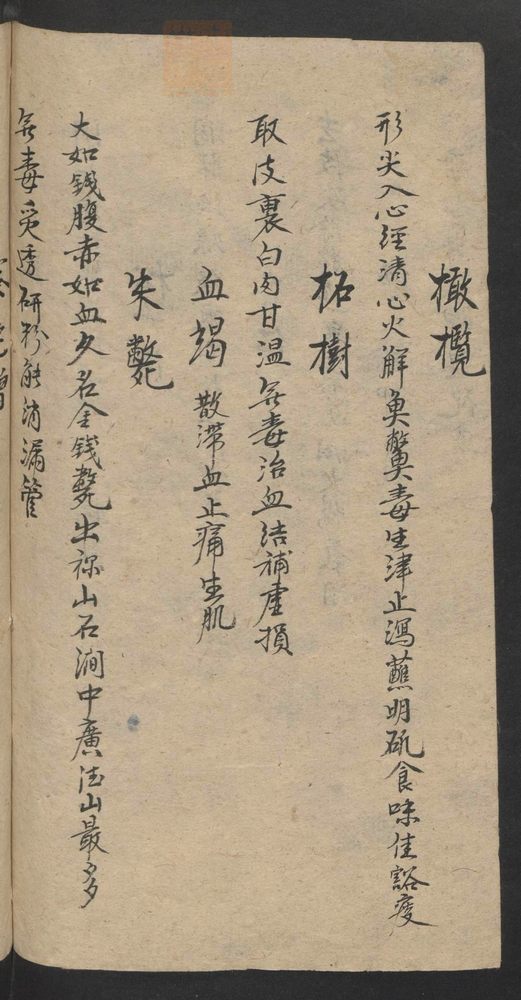 橄欖
形尖入心經清心火解魚鱉毒生津止瀉蘸明矾食味佳豁痰
柘樹
取皮裏白肉甘温無毒治血結補虛損
血竭 散滯血止痛生肌
朱鼈
大如錢腹赤如血又名金錢鼈出祢山石澗中廣法山最多
無毒炙透研粉能消漏管